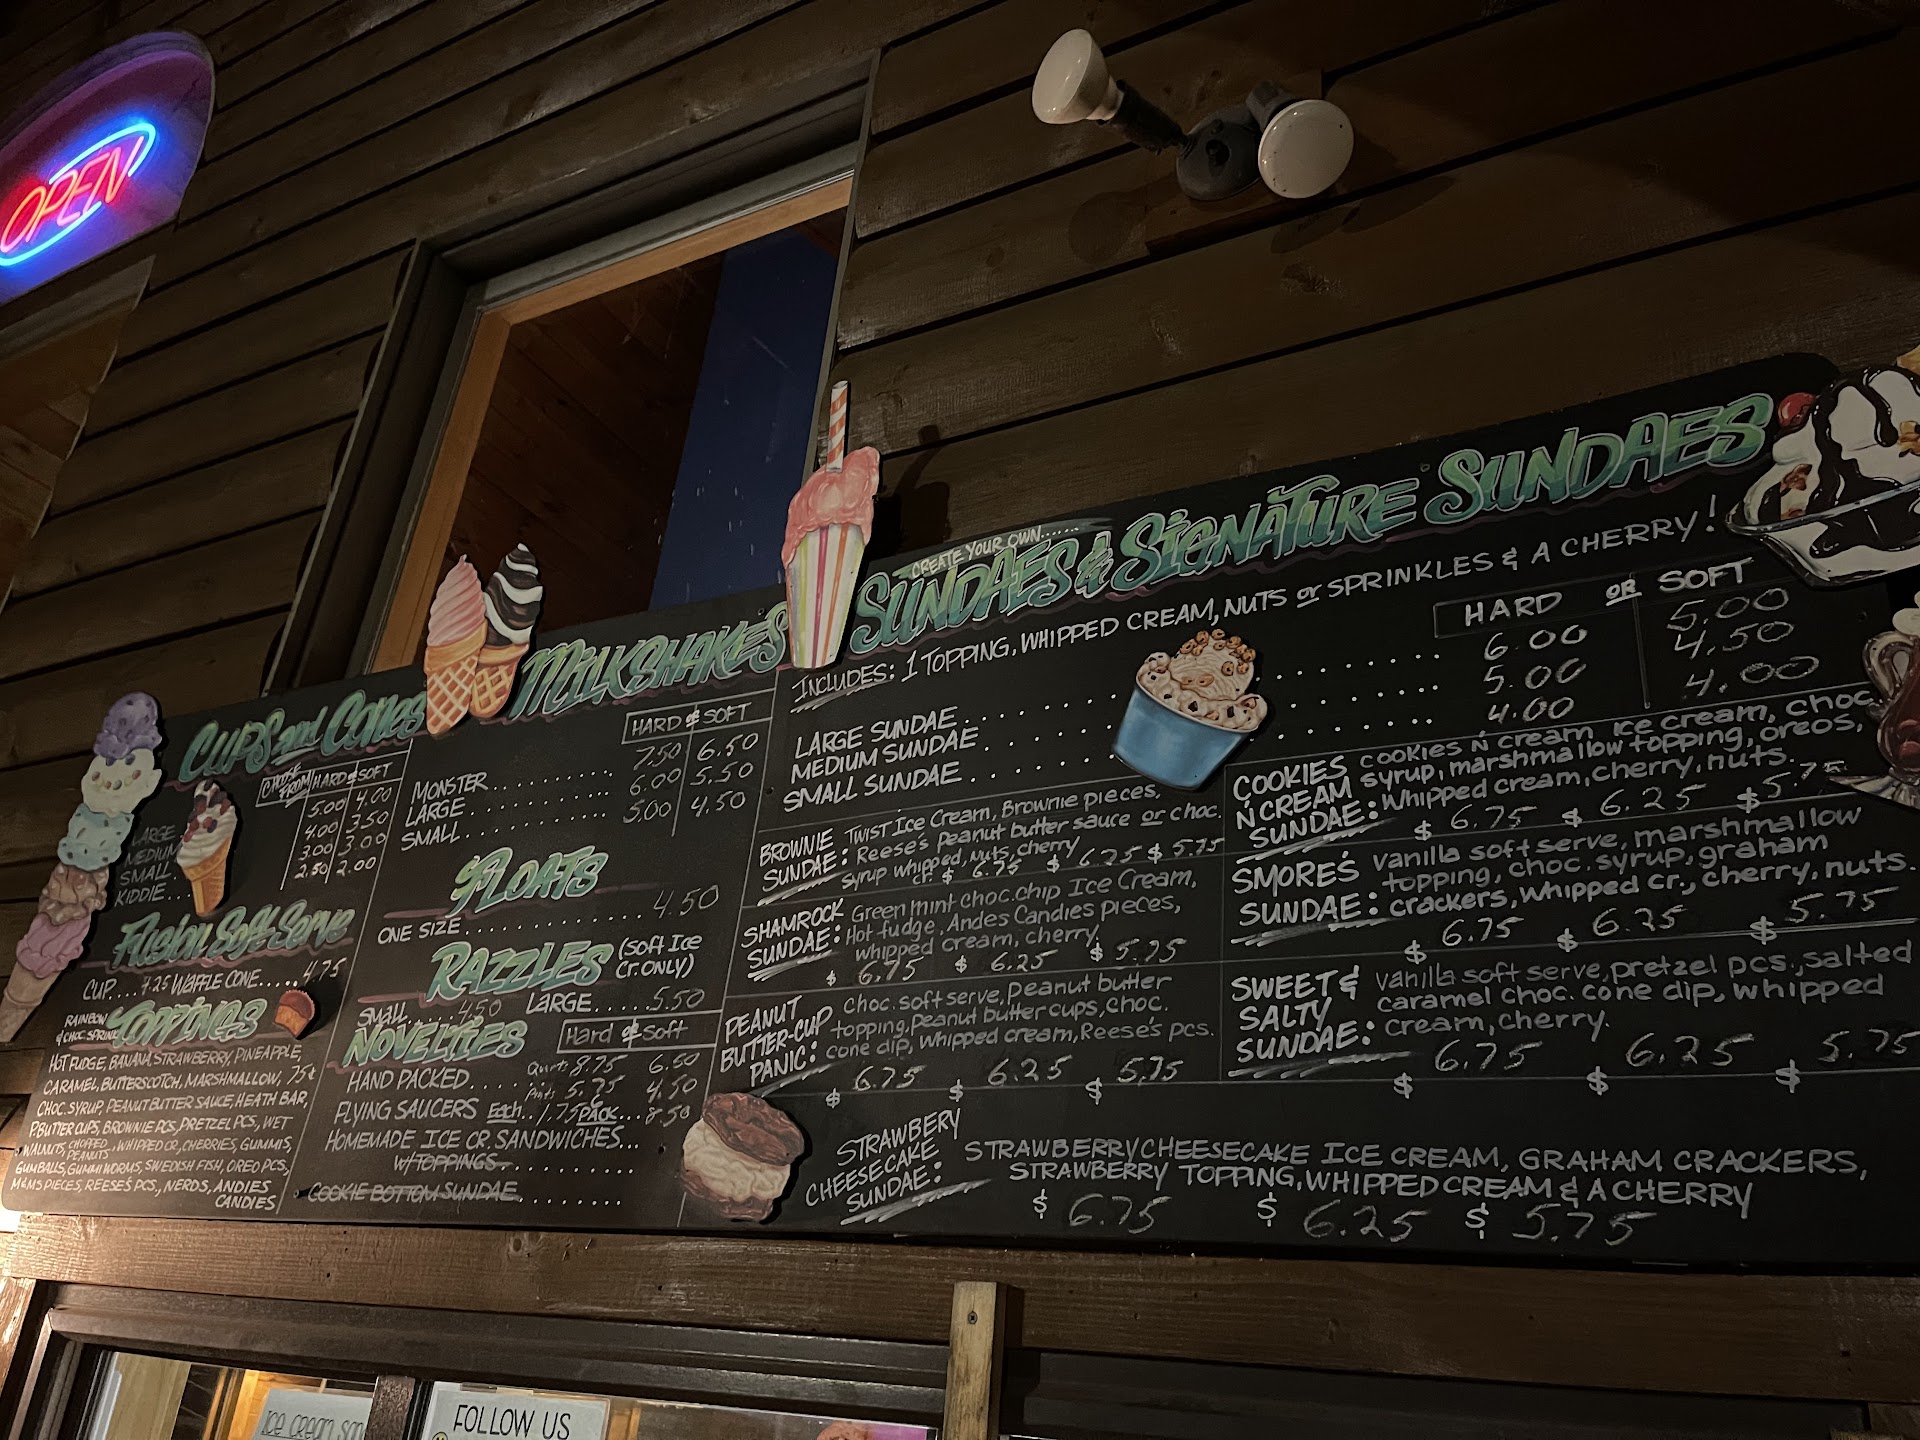 OPEN
CUPS and CONES
CHOOSE FROM HARD & SOFT
LARGE 5.00 4.00
MEDIUM 4.00 3.50
SMALL 3.00 3.00
KIDDIE... 2.50 2.00
Fusion Soft Serve
CUP.... 7.25 WAFFLE CONE..... 4.75
RAINBOW
& CHOC SPRINK
TOPPINGS
HOT FUDGE, BANANA, STRAWBERRY, PINEAPPLE,
CARAMEL, BUTTERSCOTCH, MARSHMALLOW, 75¢
CHOC. SYRUP, PEANUT BUTTER SAUCE, HEATH BAR,
P.BUTTER CUPS, BROWNIE PCS, PRETZEL PCS, WET
WALNUTS, CHOPPED PEANUTS, WHIPPED CR, CHERRIES, GUMMIS,
GUMBALLS, GUMMI WORMS, SWEDISH FISH, OREO PCS,
M&MS PIECES, REESE'S PCS., NERDS, ANDIES
CANDIES
MILKSHAKES
HARD & SOFT
MONSTER.......... 7.50 6.50
LARGE.......... 6.00 5.50
SMALL.......... 5.00 4.50
FLOATS
ONE SIZE.......... 4.50
RAZZLES (SOFT ICE
CR. ONLY)
SMALL.... 4.50 LARGE.... 5.50
NOVELTIES Hard & Soft
HAND PACKED.... Quarts 8.75 6.50
Pints 5.75 4.50
FLYING SAUCERS Each.. 1.75 6 PACK... 8.50
HOMEMADE ICE CR. SANDWICHES...
W/TOPPINGS..........
COOKIE BOTTOM SUNDAE........
CREATE YOUR OWN.....
SUNDAES & SIGNATURE SUNDAES
INCLUDES: 1 TOPPING, WHIPPED CREAM, NUTS or SPRINKLES & A CHERRY!
HARD OR SOFT
LARGE SUNDAE.......... 6.00 5.00
MEDIUM SUNDAE.......... 5.00 4.50
SMALL SUNDAE.......... 4.00 4.00
BROWNIE SUNDAE: Twist Ice Cream, Brownie pieces,
Reese's Peanut butter sauce or choc.
syrup whipped, nuts, cherry
cr. $ 6.75 $ 6.25 $ 5.75
SHAMROCK SUNDAE: Green mint choc. chip Ice Cream,
Hot fudge, Andes Candies pieces,
whipped cream, cherry.
$ 6.75 $ 6.25 $ 5.75
PEANUT BUTTER-CUP PANIC: Choc. soft serve, peanut butter
topping, peanut butter cups, choc.
cone dip, whipped cream, Reese's pcs.
$ 6.75 $ 6.25 $ 5.75
COOKIES N' CREAM SUNDAE: COOKIES N' cream Ice cream, choc
syrup, marshmallow topping, oreos,
whipped cream, cherry, nuts.
$ 6.75 $ 6.25 $ 5.75
SMORE'S SUNDAE: vanilla soft serve, marshmallow
topping, choc. syrup, graham
crackers, whipped cr., cherry, nuts.
$ 6.75 $ 6.25 $ 5.75
SWEET & SALTY SUNDAE: vanilla soft serve, pretzel pcs., salted
caramel choc. cone dip, whipped
cream, cherry.
$ 6.75 $ 6.25 $ 5.75
STRAWBERY CHEESECAKE SUNDAE: STRAWBERRY CHEESECAKE ICE CREAM, GRAHAM CRACKERS,
STRAWBERRY TOPPING, WHIPPED CREAM & A CHERRY
$ 6.75 $ 6.25 $ 5.75
ICE CREAM
FOLLOW US